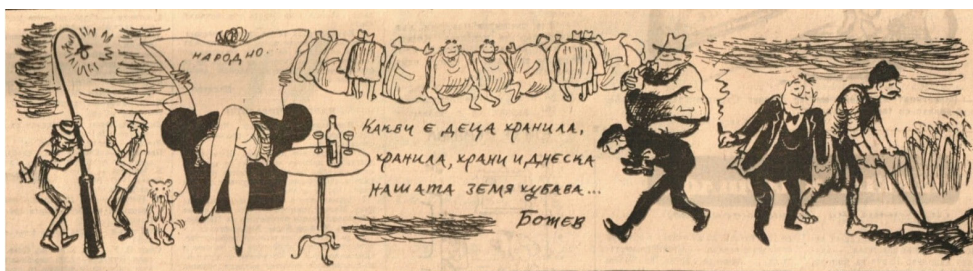 НАРОДНО.
КАКВИ Е ДЕЦА ХРАНИЛА,
ХРАНИЛА, ХРАНИ И ДНЕСКА
НАШАТА ЗЕМЯ ХУБАВА...
БОЖЕВ